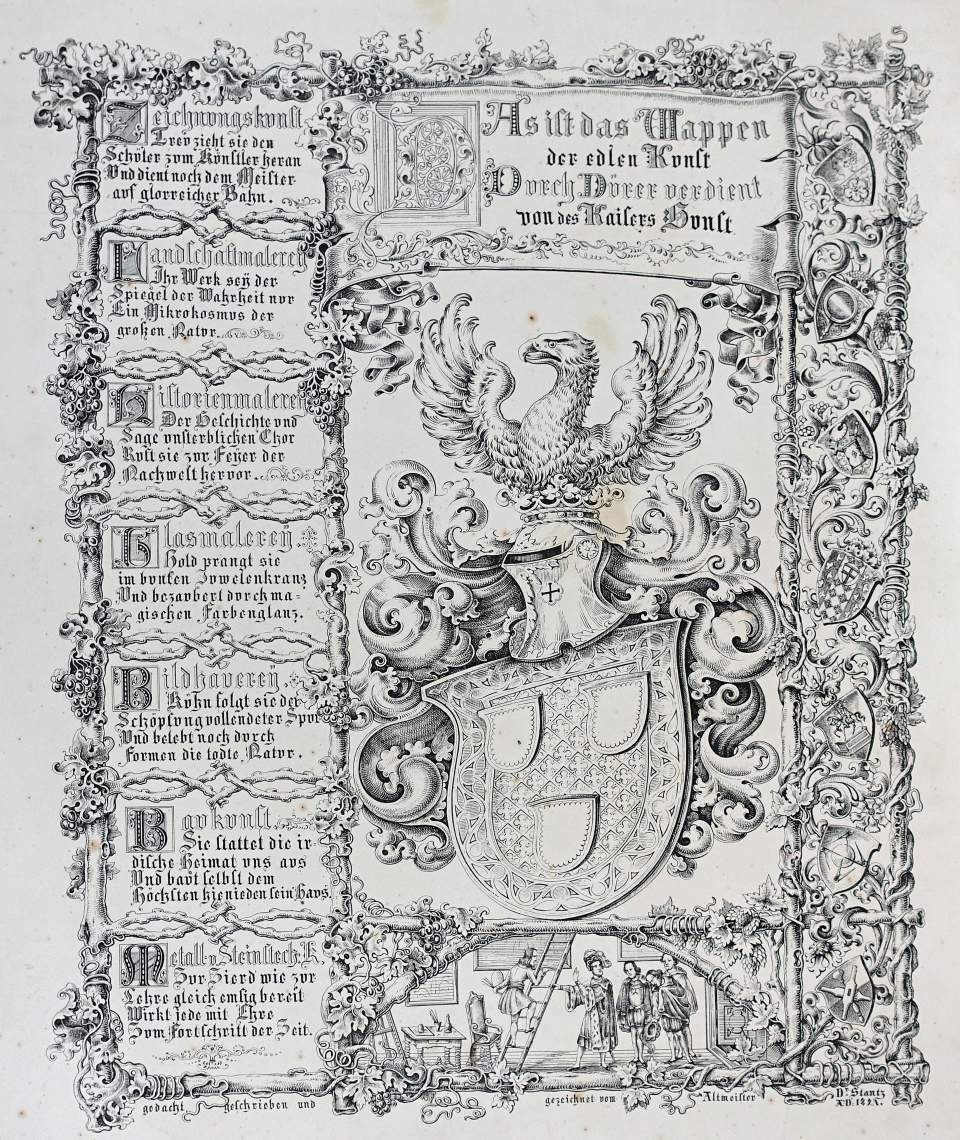 Das ist das Wappen
der edlen Kvnst
Dvrch Dürer verdient
von des Kaisers Gvnst
Zeichnvngskvnst
Trev zieht sie den
Schüler zvm Künstler heran
Vnd dient noch dem Meister
avf glorreicher Bahn.
Landschaftmalerey
Ihr Werk seÿ der
Spiegel der Wahrheit nvr
Ein Mikrokosmvs der
großen Natvr.
Historienmalerei
Der Geschichte vnd
Sage vnsterblichen Chor
Rvft sie zvr Feÿer der
Nachwelt hervor.
Glasmalereÿ
Hold prangt sie
im bvnten Jvwelenkranz
Vnd bezavbert dvrch ma-
gischen Farbenglanz.
Bildhaverey
Kühn folgt sie der
Schöpfvng vollendeter Spvr
Vnd belebt noch dvrch
Formen die todte Natvr.
Bavkvnst
Sie stattet die ir-
dische Heimat vns avs
Vnd bavt selbst dem
Höchsten hienieden sein Havs.
Metall- v. Steinstech. K.
Zvr Zierd wie zvr
Lehre gleich emsig bereit
Wirkt jede mit Ehre
Zvm Fortschritt der Zeit.
gedacht geschrieben und gezeichnet vom Altmeister Dr. Stantz